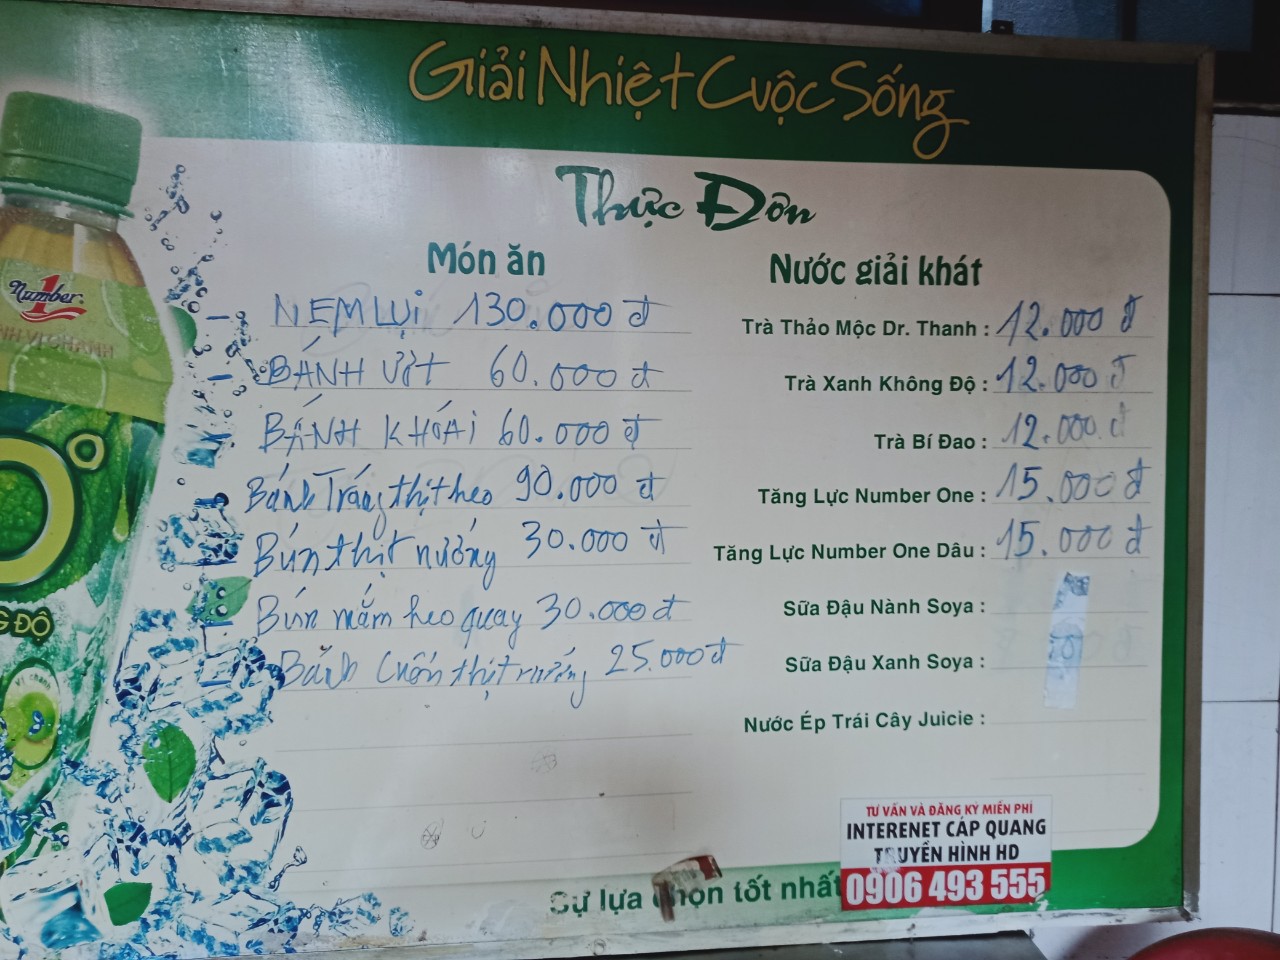 Giải Nhiệt Cuộc Sống
Thực Đơn
Món ăn
NEM LỤI 130.000 đ
BÁNH ƯỚT 60.000 đ
BÁNH KHOÁI 60.000 đ
Bánh Tráng thịt heo 90.000 đ
Bún thịt nướng 30.000 đ
Bún mắm heo quay 30.000 đ
Bánh Cuốn thịt nướng 25.000 đ
Nước giải khát
Trà Thảo Mộc Dr. Thanh : 12.000 đ
Trà Xanh Không Độ : 12.000 đ
Trà Bí Đao : 12.000 đ
Tăng Lực Number One : 15.000 đ
Tăng Lực Number One Dâu : 15.000 đ
Sữa Đậu Nành Soya :
Sữa Đậu Xanh Soya :
Nước Ép Trái Cây Juicie :
Number 1
0°
G ĐỘ
Vị chanh
Sự lựa chọn tốt nhất
TƯ VẤN VÀ ĐĂNG KÝ MIỄN PHÍ
INTERENET CÁP QUANG
TRUYỀN HÌNH HD
0906 493 555